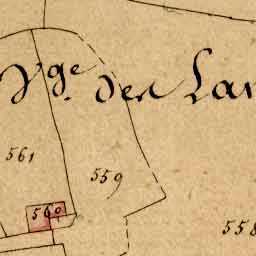 Vge. der Lan
561
559
560
558